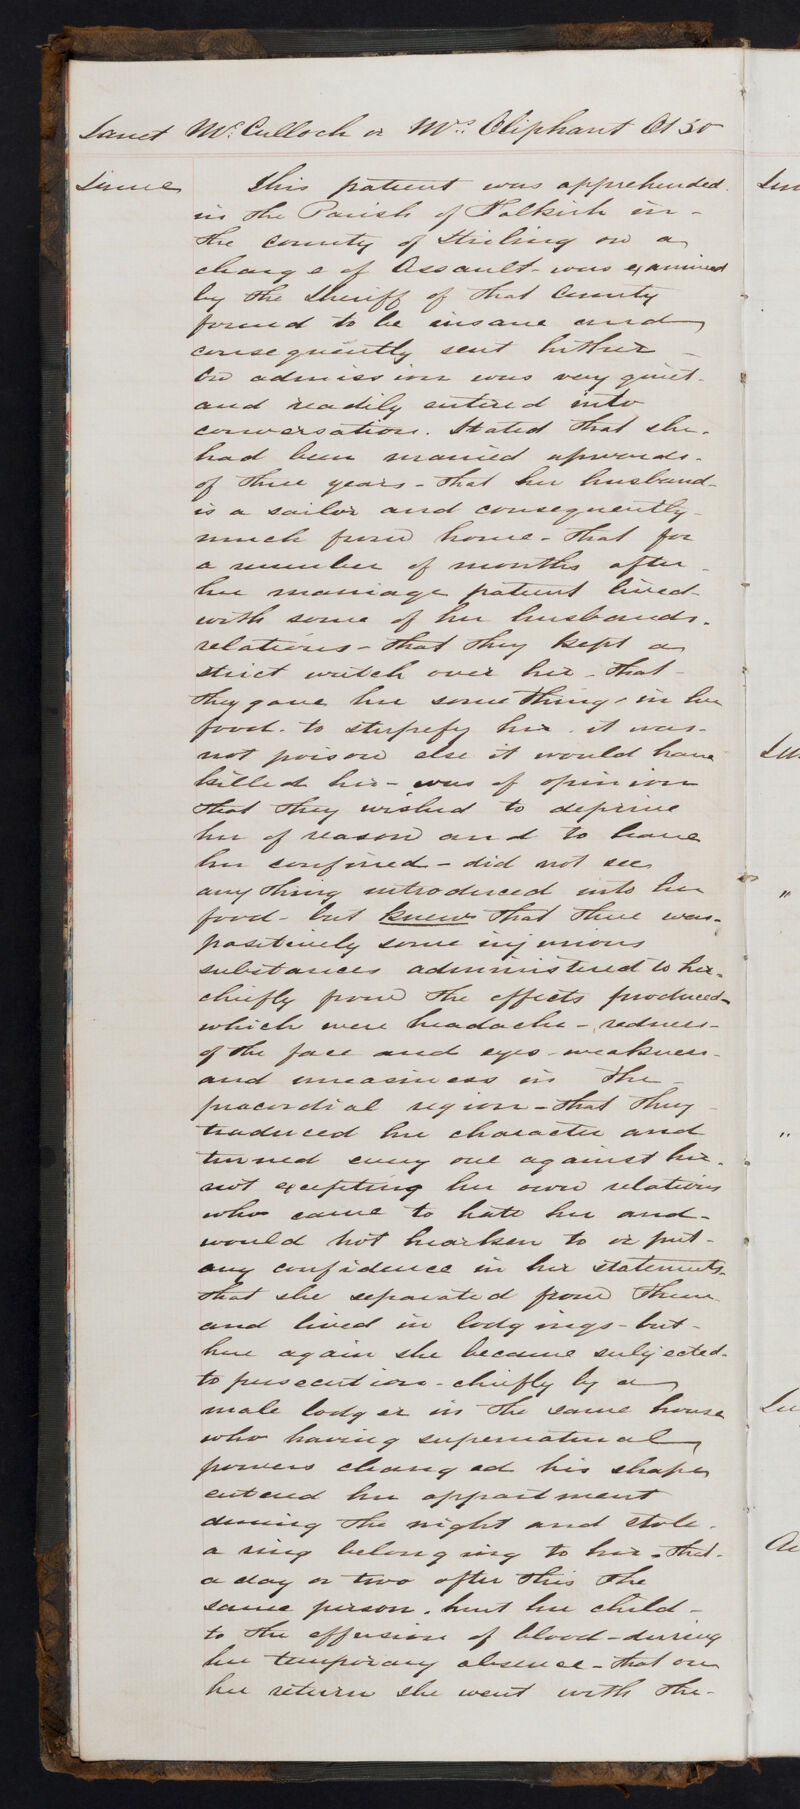 Janet McCulloch or Mrs. Oliphant Æt 50
This patient was apprehended
in the Parish of Falkirk in -
the county of Stirling on a
charge of Assault - was examined
by the Sheriff of that County
found to be insane and
consequently sent hither -
On admission was very quiet -
and readily entered into
conversation. Stated that she -
had been married upwards -
of three years - that her husband -
is a sailor and consequently -
much from home - that for
a number of months after -
her marriage patient lived -
with some of her husbands -
relations - that they kept a
strict watch over her - that -
they gave her something - in her
food - to stupefy her - it was -
not poison else it would have
killed her - was of opinion
that they wished to deprive
her of reason and to have
her confined - did not see
any thing introduced into her
food - but knew that there was -
positively some injurious
substances administered to her -
chiefly from the effects produced -
which were headache - redness -
of the face and eyes - weakness -
and uneasiness in the -
praecordial region - that they -
traduced her character and
turned every one against her -
not excepting her own relations
who came to hate her and -
would not hearken to or put -
any confidence in her statements -
that she separated from them
and lived in lodgings - but -
here again she became subjected -
to persecution - chiefly by a
male lodger in the same house
who having supernatural
powers changed his shape
entered her appartment
during the night and stole -
a ring belonging to her - that -
a day or two after this the
same person - hurt her child -
to the effusion of blood - during
her temporary absence - that on
her return she went with the -